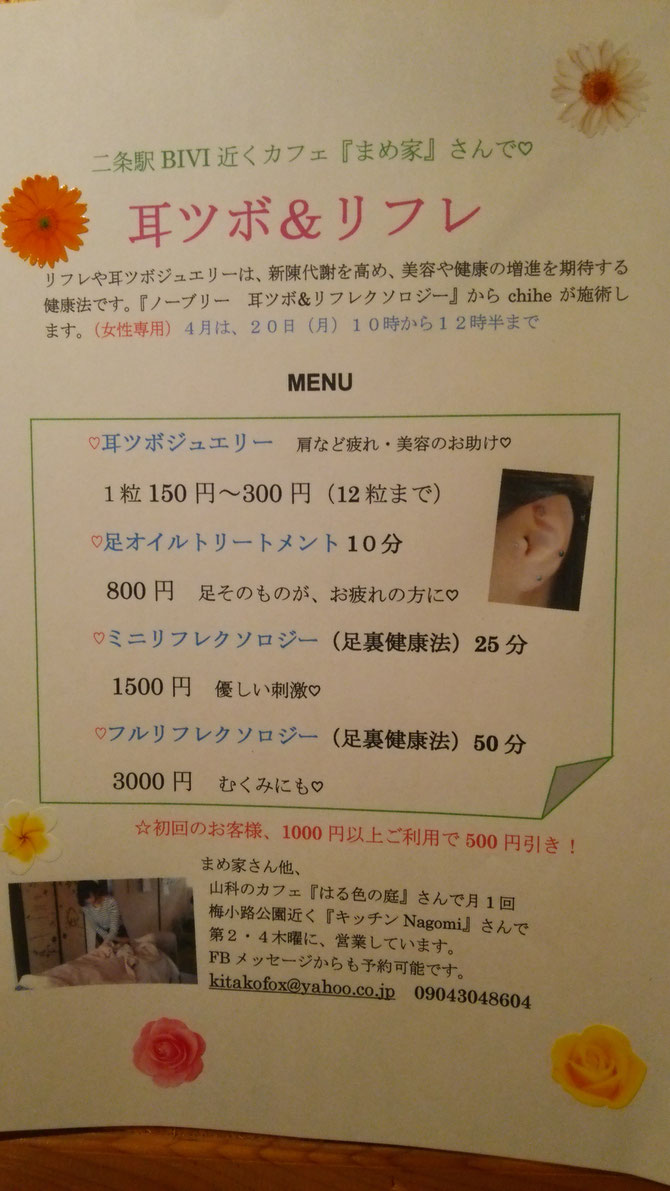 二条駅BIVI近くカフェ『まめ家』さんで♡
耳ツボ&リフレ
リフレや耳ツボジュエリーは、新陳代謝を高め、美容や健康の増進を期待する
健康法です。『ノーブリー　耳ツボ&リフレクソロジー』から chihe が施術し
ます。（女性専用）４月は、２０日（月）１０時から１２時半まで
MENU
♡耳ツボジュエリー　肩など疲れ・美容のお助け♡
１粒 150 円～300 円（12 粒まで）
♡足オイルトリートメント 10 分
800 円　足そのものが、お疲れの方に♡
♡ミニリフレクソロジー（足裏健康法）25 分
1500 円　優しい刺激♡
♡フルリフレクソロジー（足裏健康法）50 分
3000 円　むくみにも♡
☆初回のお客様、1000 円以上ご利用で 500 円引き！
まめ家さん他、
山科のカフェ『はる色の庭』さんで月 1 回
梅小路公園近く『キッチン Nagomi』さんで
第２・４木曜に、営業しています。
FB メッセージからも予約可能です。
kitakofox@yahoo.co.jp　09043048604